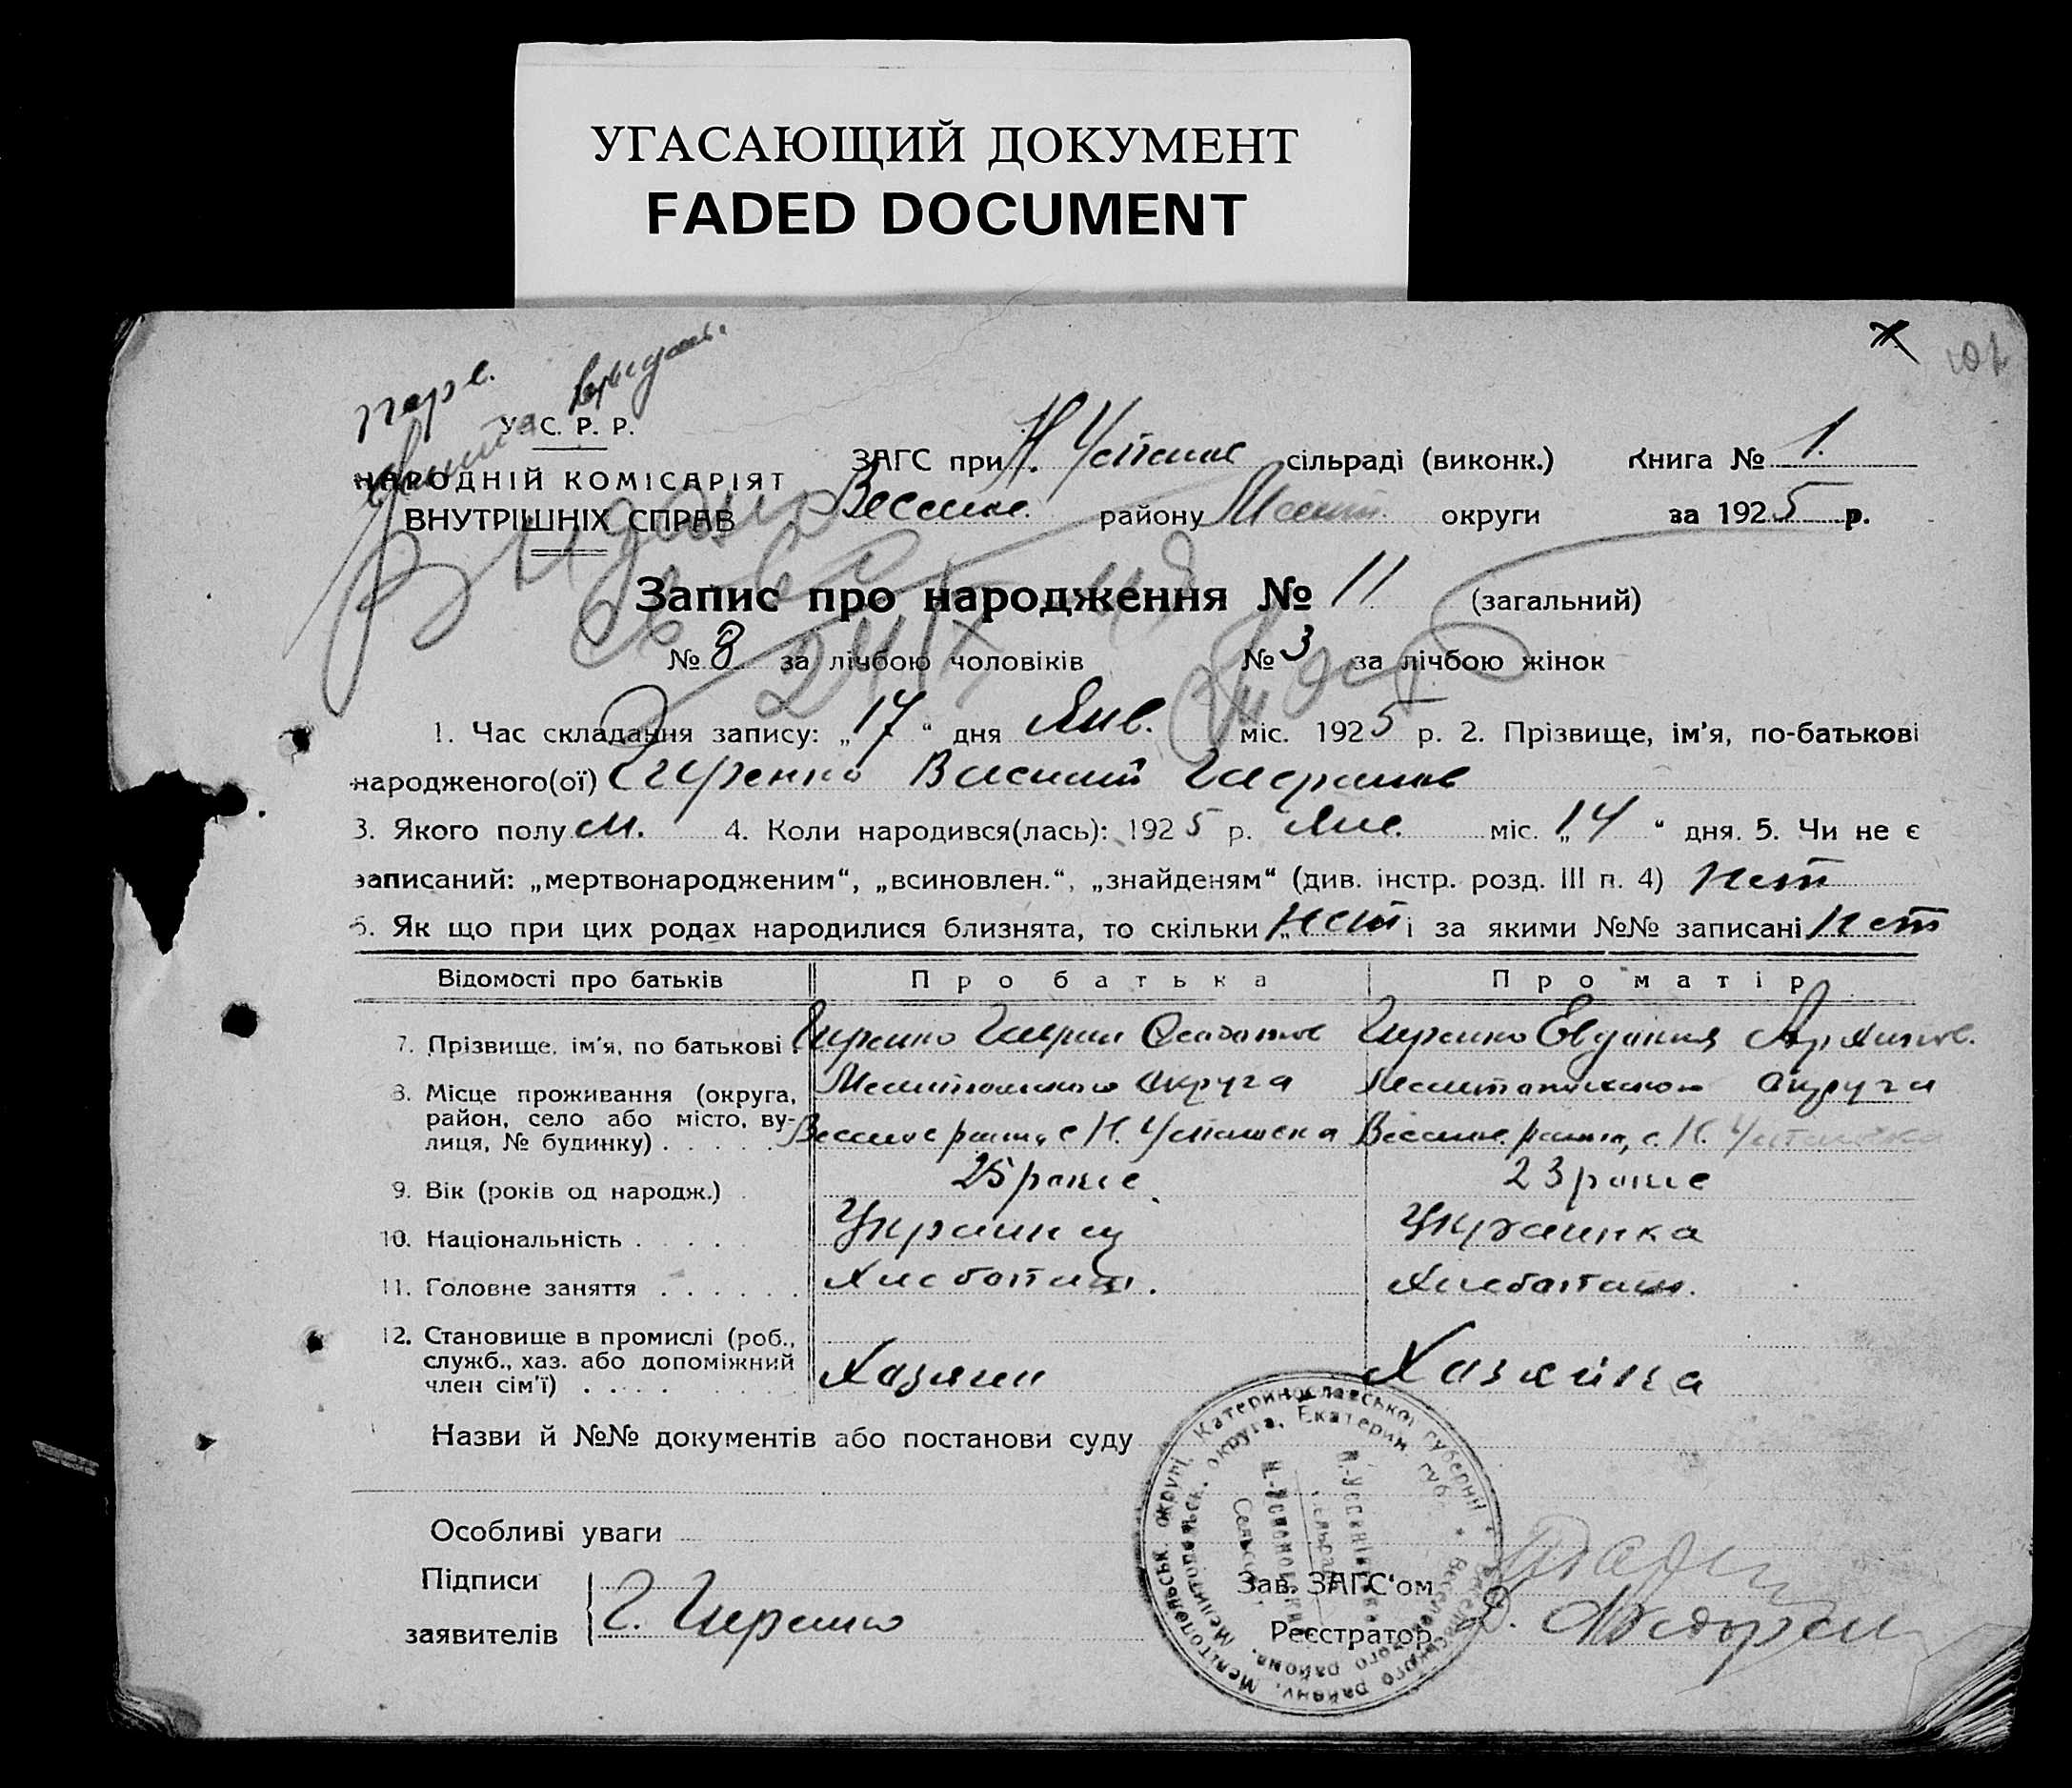 УГАСАЮЩИЙ ДОКУМЕНТ
FADED DOCUMENT
У. С. Р. Р.
НАРОДНІЙ КОМІСАРІЯТ
ВНУТРІШНІХ СПРАВ
ЗАГС при Н. Успенс сільраді (виконк.) Книга № 1.
Веселов. району Мелит. округи за 1925 р.
Запис про народження № 11 (загальний)
№ 8 за лічбою чоловіків № 3 за лічбою жінок
1. Час складання запису: „17“ дня Янв. міс. 1925 р. 2. Прізвище, ім'я, по-батькові
народженого(ої) Гиренко Василий Гаврилов
3. Якого полу м. 4. Коли народився(лась): 1925 р. Янв. міс. „14“ дня. 5. Чи не є
записаний: „мертвонародженим“, „всиновлен.“, „знайденям“ (див. інстр. розд. III п. 4) нет
6. Як що при цих родах народилися близнята, то скільки „нет і за якими №№ записані нет
Відомості про батьків Про батька Про матір
7. Прізвище, ім'я, по батькові Гиренко Гаврил Гиренко Евдокия Архипов.
8. Місце проживання (округа, район, село або місто, вулиця, № будинку) Мелитопольского округа Мелитопольского округа
Веселов район, с Н. Успеновка Веселов. район, с. Н. Успеновка
9. Вік (років од народж.) 25 років 23 років
10. Національність Украинец Украинка
11. Головне заняття Хлебопаш. Хлебопаш.
12. Становище в промислі (роб., служб., хаз. або допоміжний член сім'ї) Хазяин Хазяйка
Назви й №№ документів або постанови суду
Особливі уваги
Підписи
заявителів Г. Гиренко
Зав. ЗАГС'ом
Реєстратор